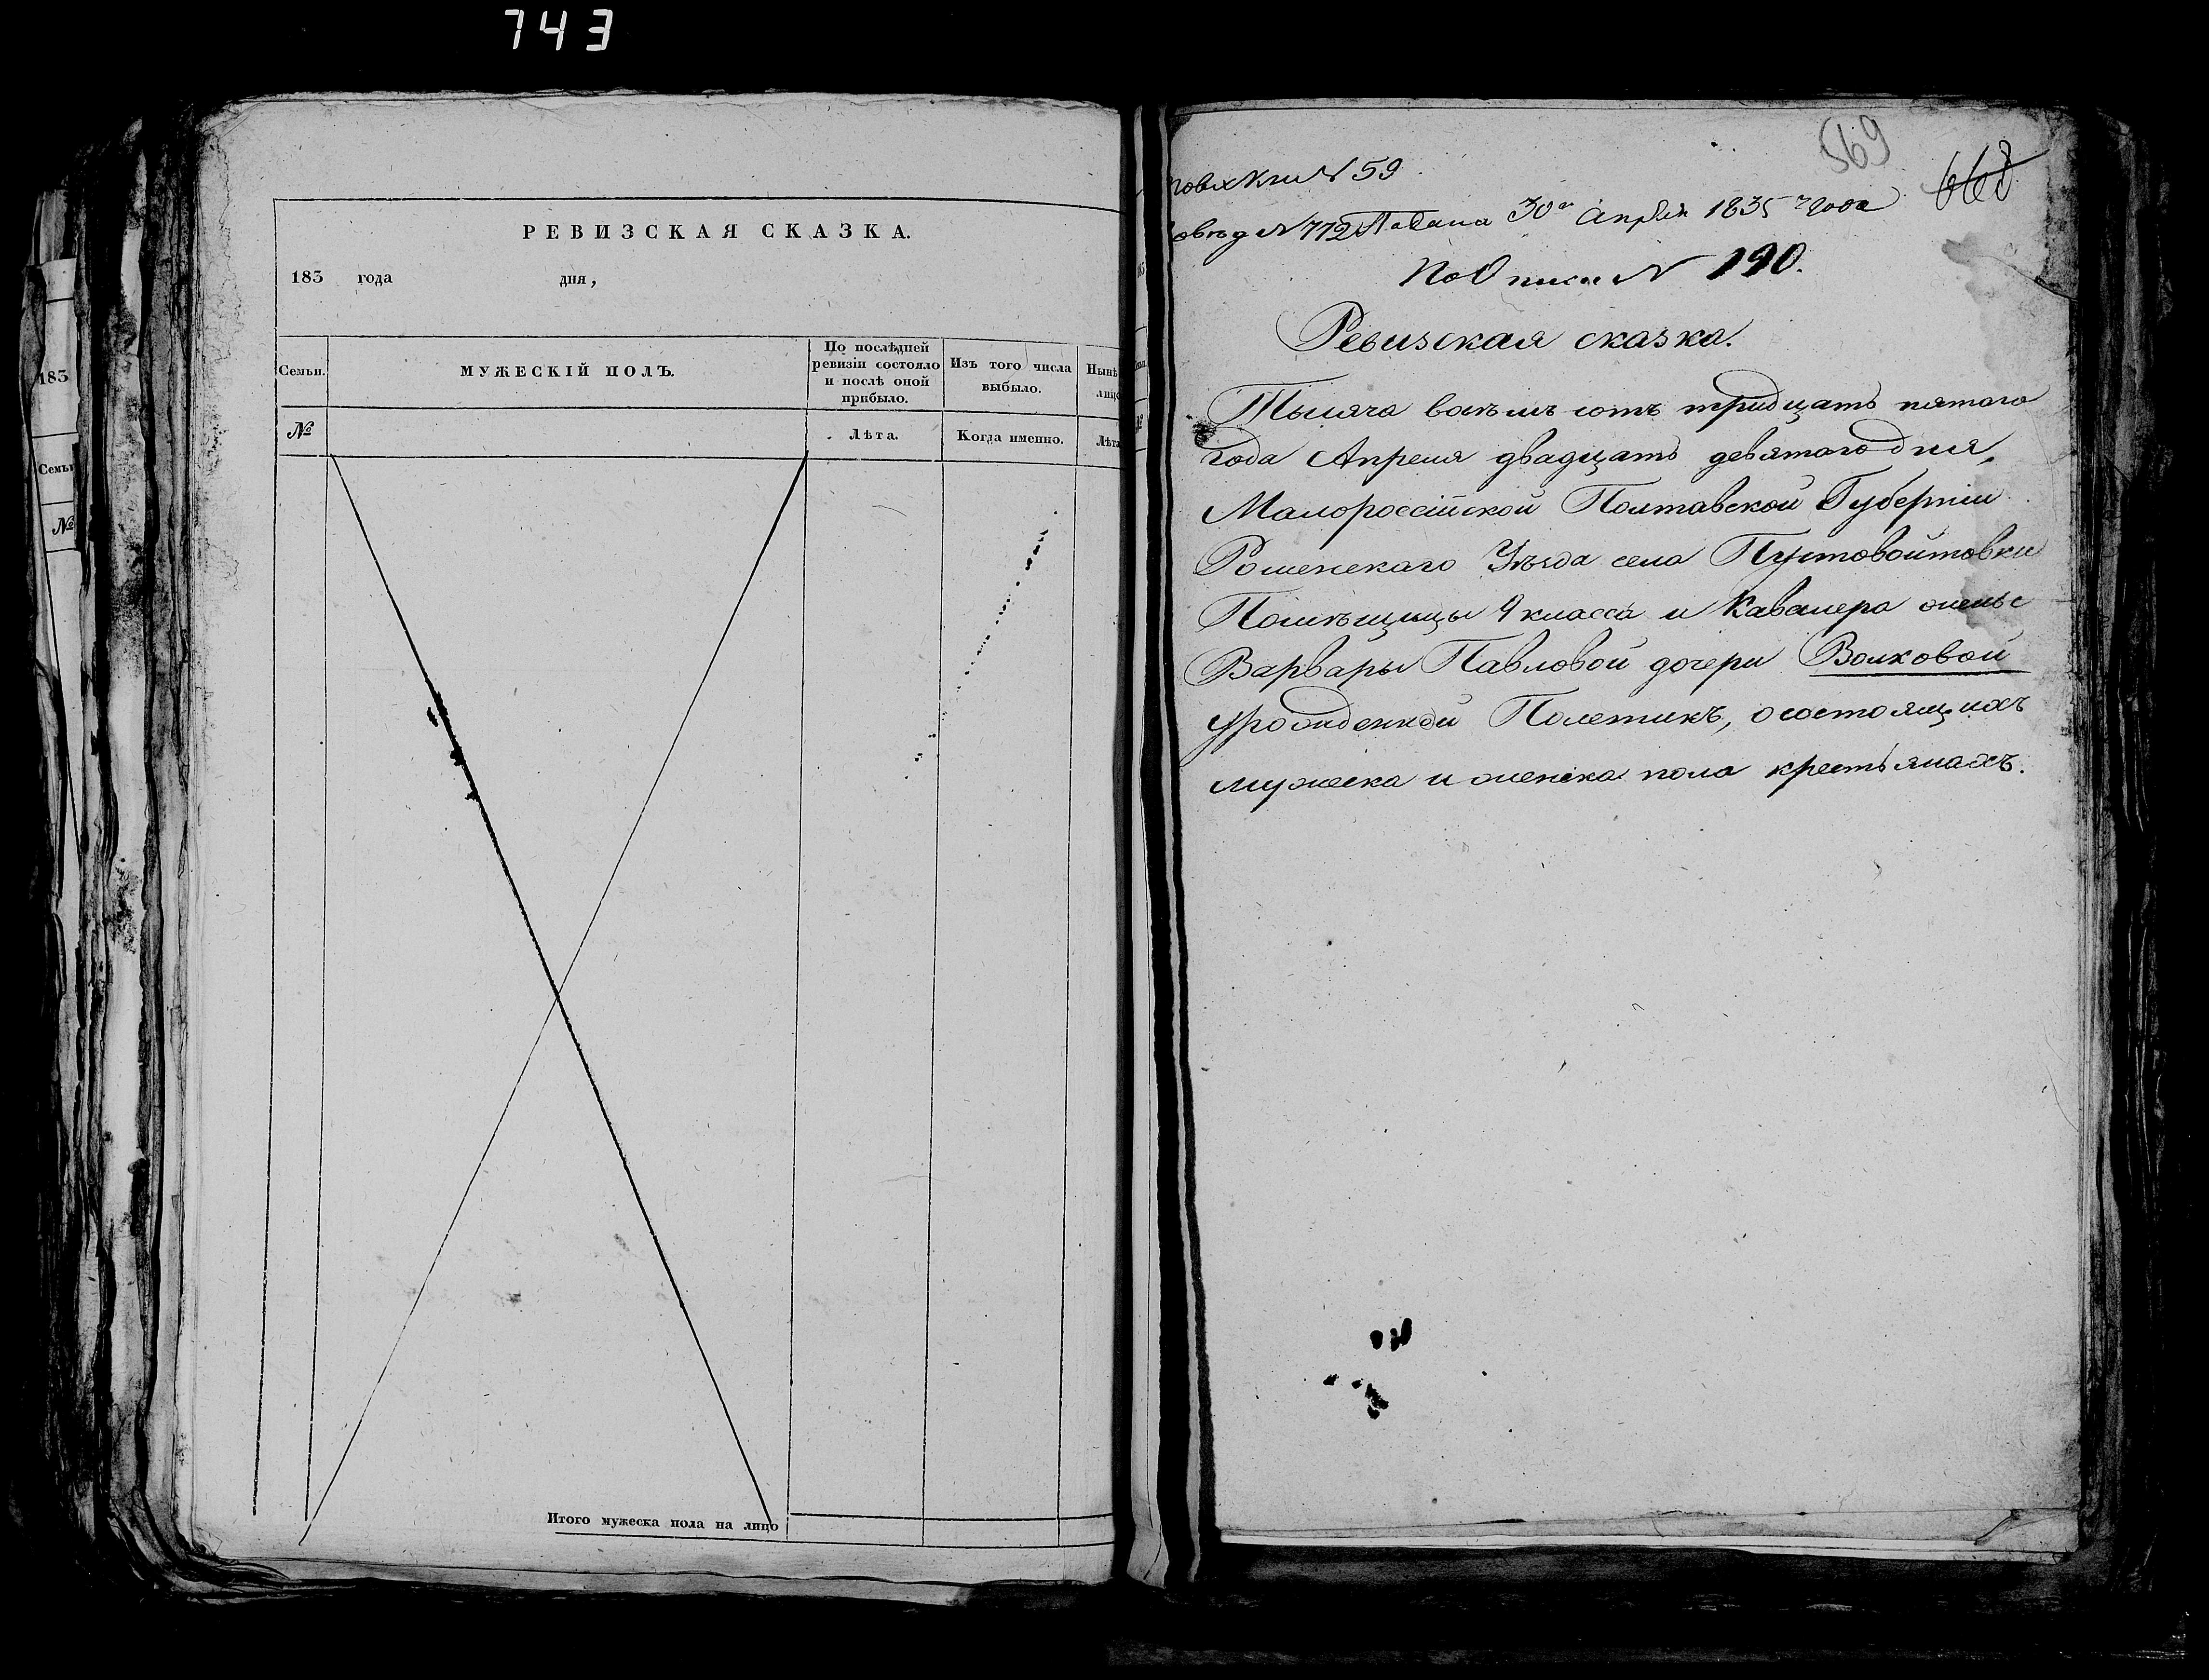 743
183
Семьи
№
РЕВИЗСКАЯ СКАЗКА.
183 года дня,
Семьи.
МУЖЕСКІЙ ПОЛЪ.
По послѣдней ревизіи состояло и послѣ оной прибыло.
Изъ того числа выбыло.
Нынѣ лицо
№
Лѣта.
Когда именно.
Лѣта
Итого мужеска пола на лицо
569
668
№ 59
№ 772 Подана 30го Апреля 1835 года
По Описи № 190.
Ревизская сказка.
Тысяча восемь сотъ тридцать пятого
года Апреля двадцать девятого дня,
Малороссійской Полтавской Губерніи
Роменскаго Уезда села Пустовойтовки
Помѣщицы 4 класса и Кавалера жены
Варвары Павловой дочери Волковой
урожденной Полетикъ, о состоящихъ
мужеска и женска пола крестьянахъ.